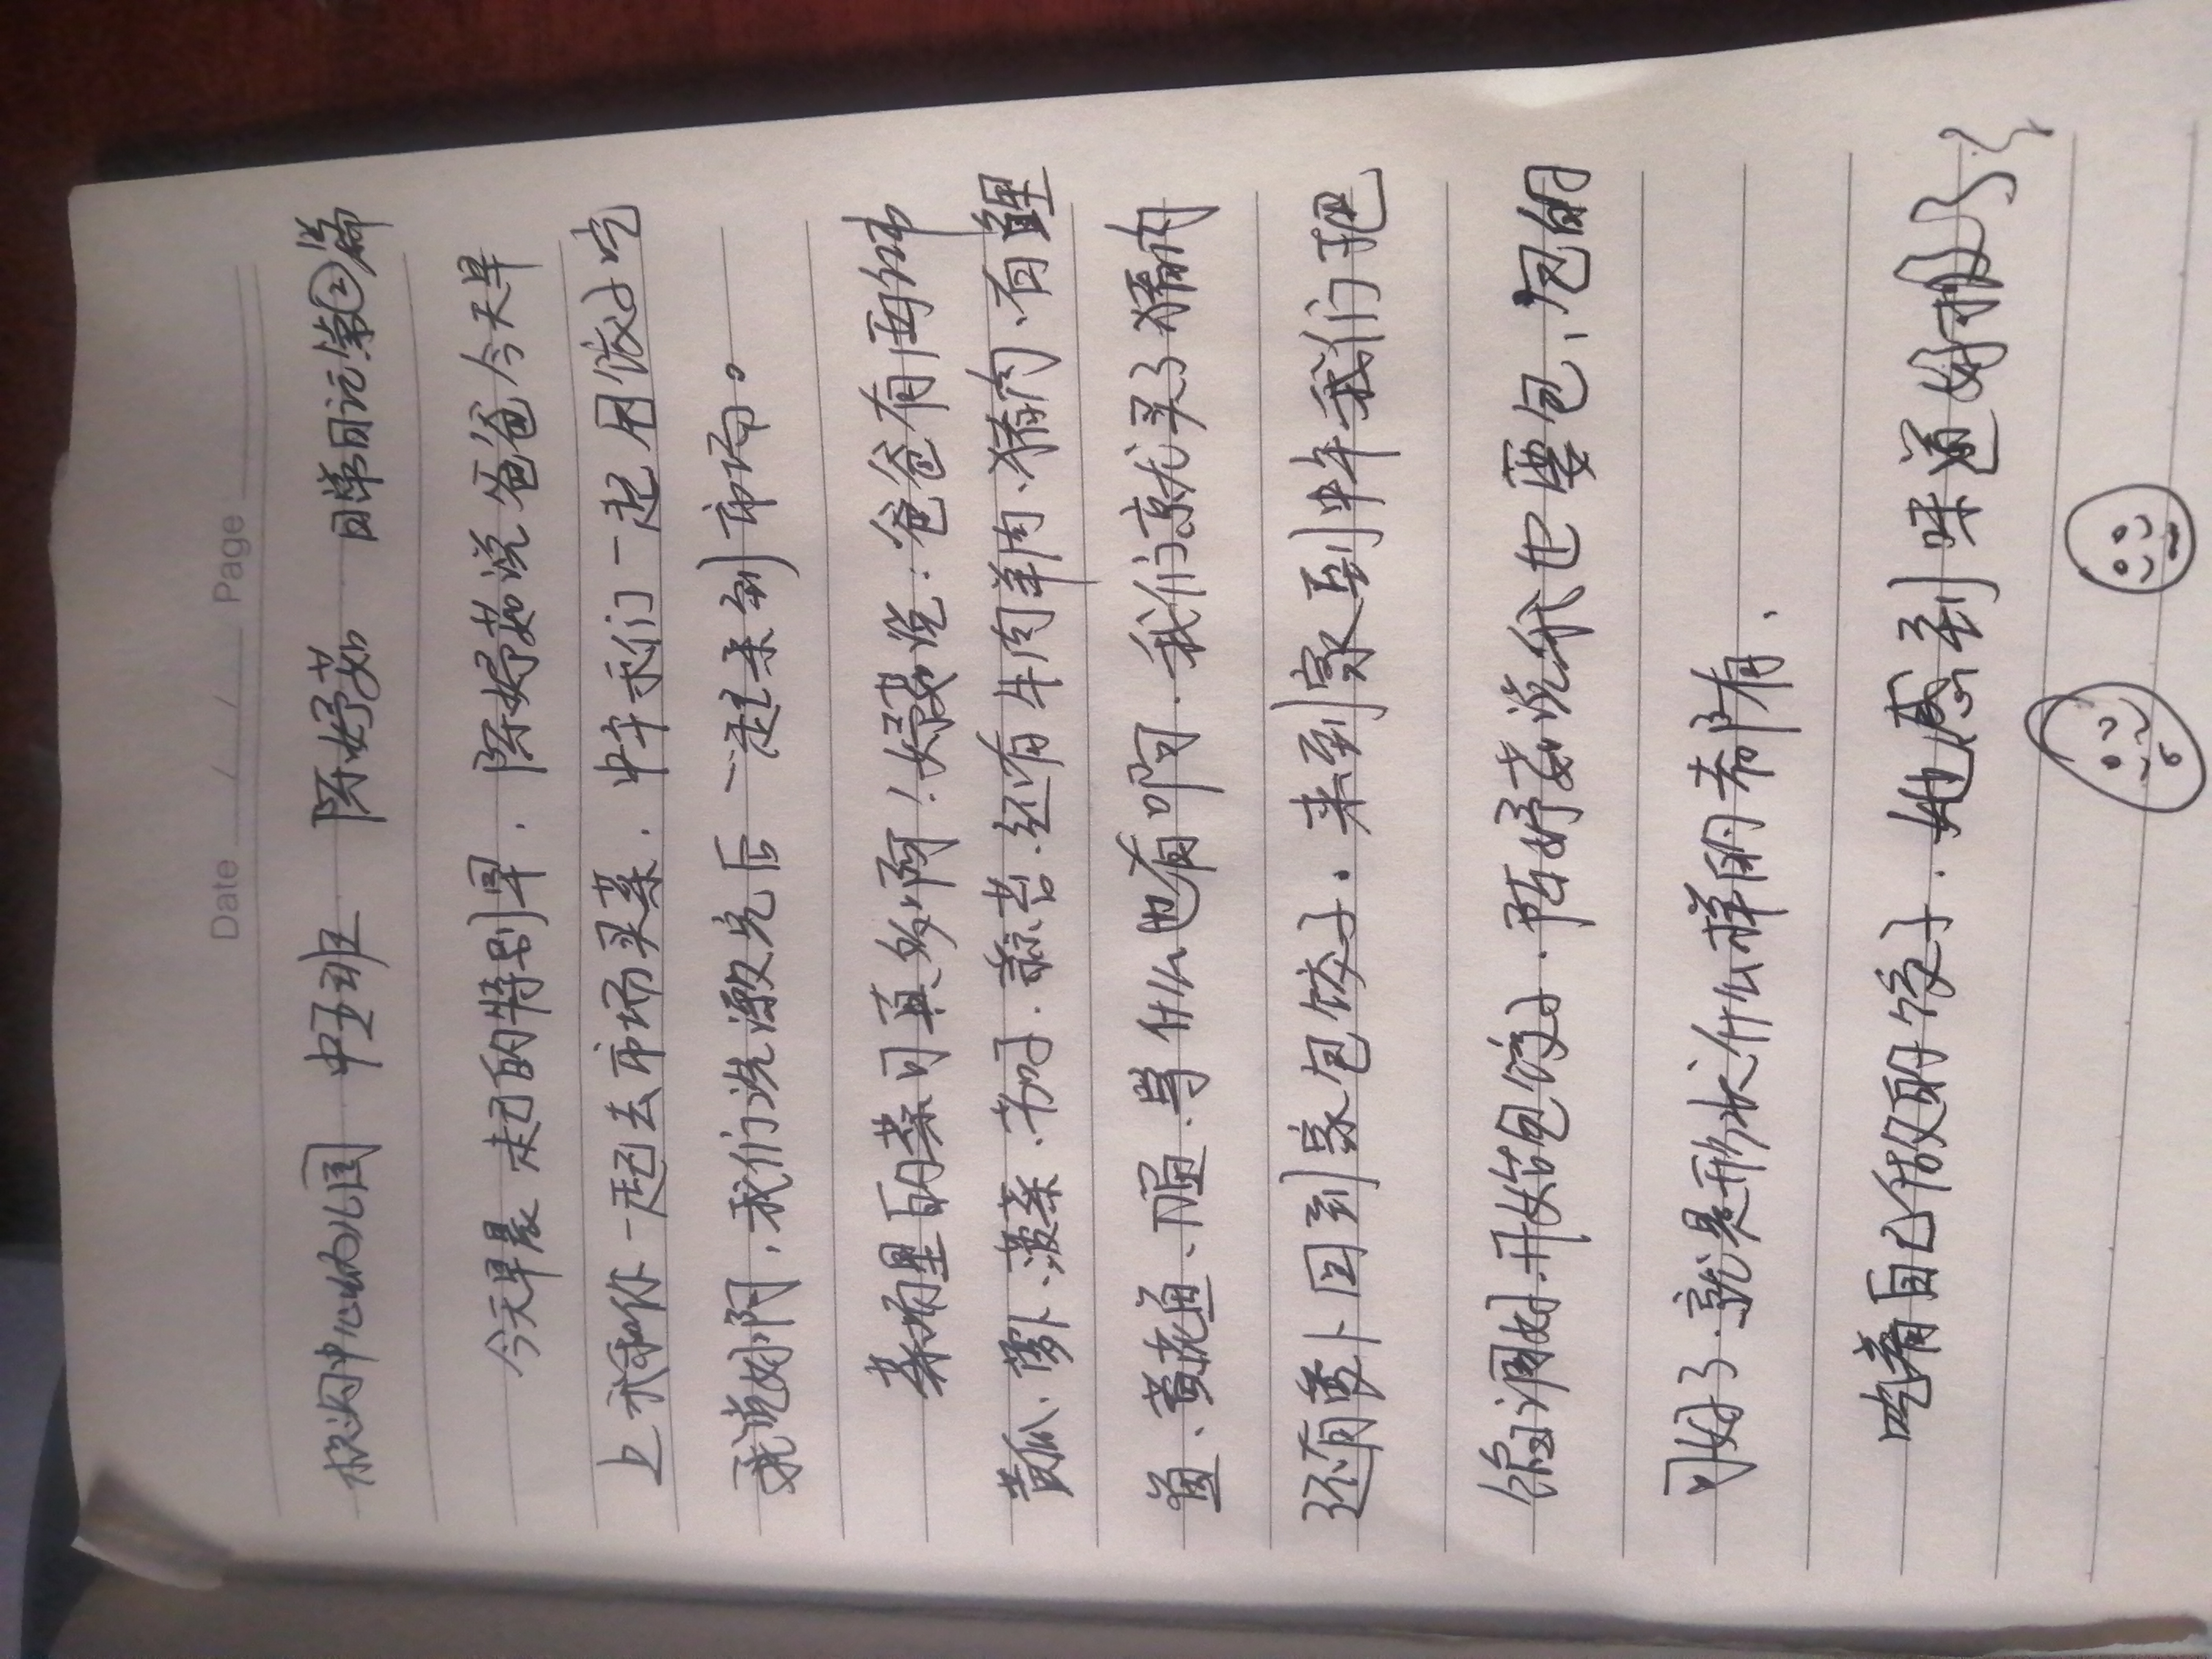 Date / / Page
板沟中心幼儿园 中班 陈妤茹 口第日记第②篇
今天早晨 起的特别早. 陈妤茹说爸爸今天早
上我和你一起去市场买菜. 中午我们一起用做好吃
我说好啊,我们洗漱完后一起来到市场。
菜场里的菜可真多啊!妤茹说:爸爸有西红
黄瓜、萝卜、菠菜、茄子.还有牛肉羊肉、猪肉、有鲤
鱼、黄花鱼、什么也有啊.我们就买了猪肉
还有萝卜回到家包饺子.来到家到中午我们把
馅调好.开始包饺子.陈妤茹说我也要包、包的
可好了.就是形状什么样的都有、
吃着自己做的饺子.她感到味道好极了